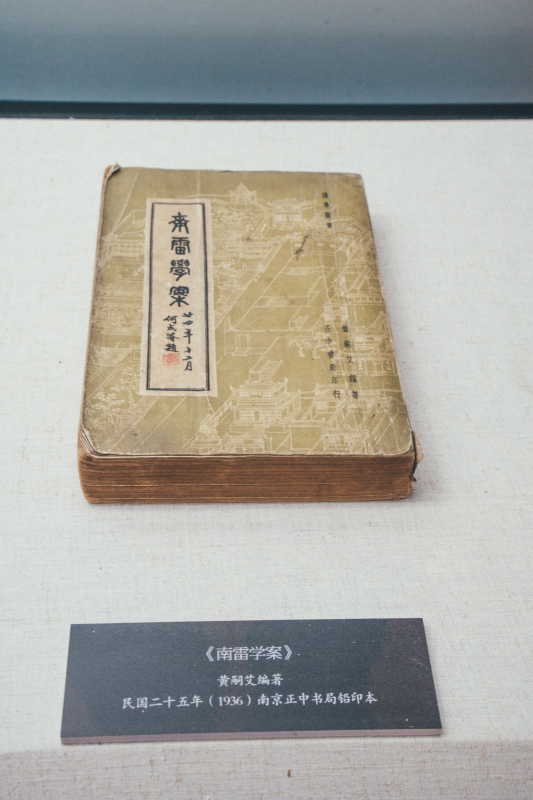 南雷學案
廿四年十二月
何成濬題
國學叢書
黃嗣艾編著
正中書局印行
《南雷学案》
黄嗣艾编著
民国二十五年（1936）南京正中书局铅印本